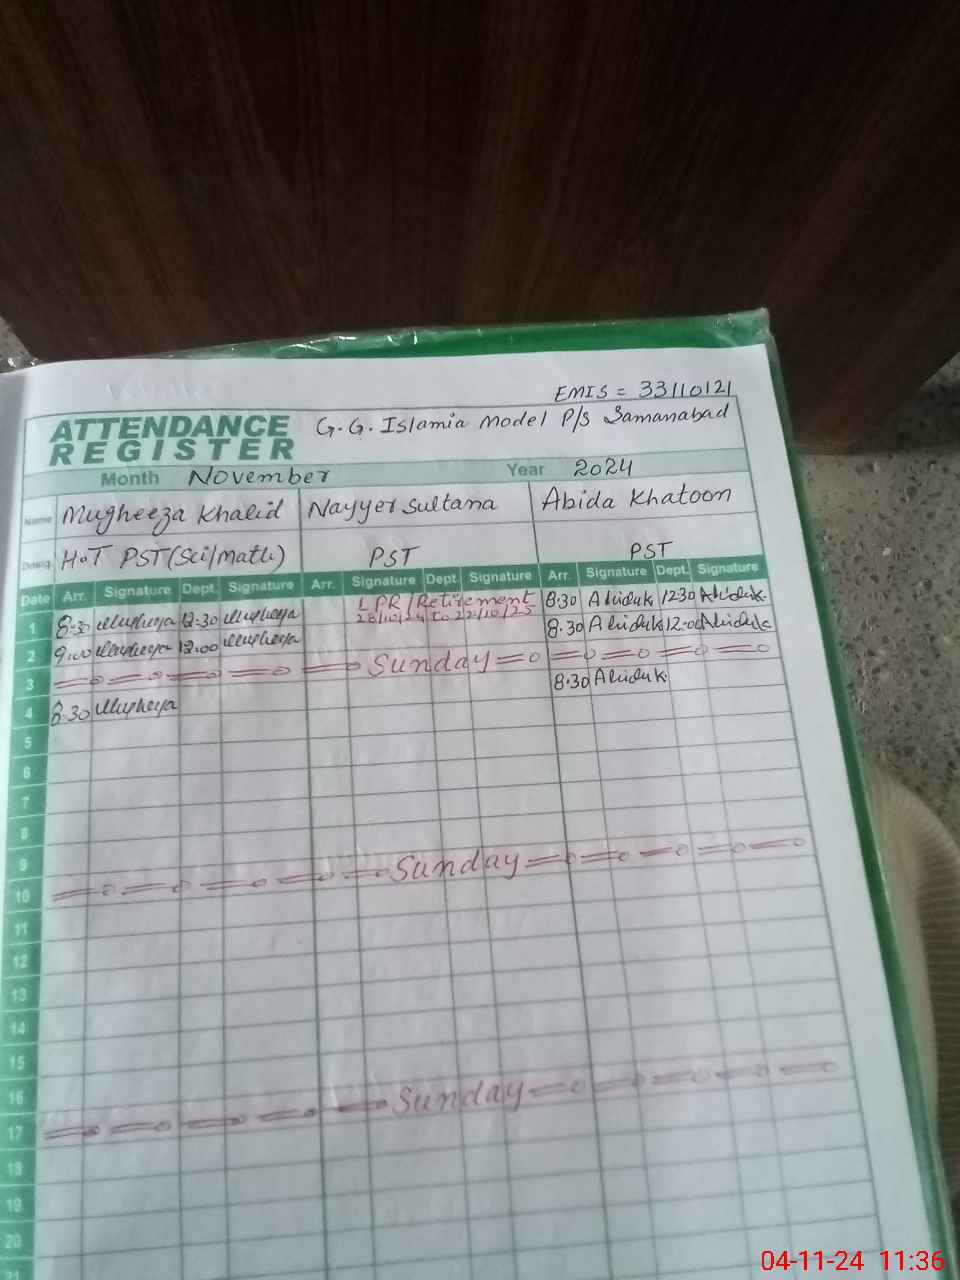 EMIS = 33110121
ATTENDANCE REGISTER G.G. Islamia Model P/S Samanabad
Month November Year 2024
Name Mugheeza Khalid Nayyer Sultana Abida Khatoon
Desig. H.T PST (Sci/Math) PST PST
Date Arr. Signature Dept. Signature Arr. Signature Dept. Signature Arr. Signature Dept. Signature
1 8:30 12:30 LPR/Retirement 28/10/24 to 22/10/25 8:30 12:30
2 9:00 12:00 8:30 12:00
3 Sunday
4 8:30 8:30
5
6
7
8
9
10 Sunday
11
12
13
14
15
16
17 Sunday
18
19
20
21
04-11-24 11:36